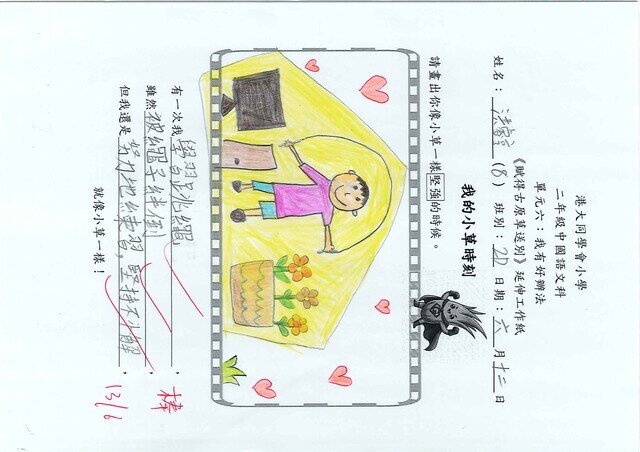 港大同學會小學
二年級中國語文科
單元六：我有好辦法
《賦得古原草送別》延伸工作紙
姓名： (8) 班別：2D 日期：六月十二日
我的小草時刻
請畫出你像小草一樣堅強的時候。
有一次我學習跳繩，
雖然被繩子絆倒，
但我還是努力地練習，堅持不懈，
就像小草一樣！
棒
13/6